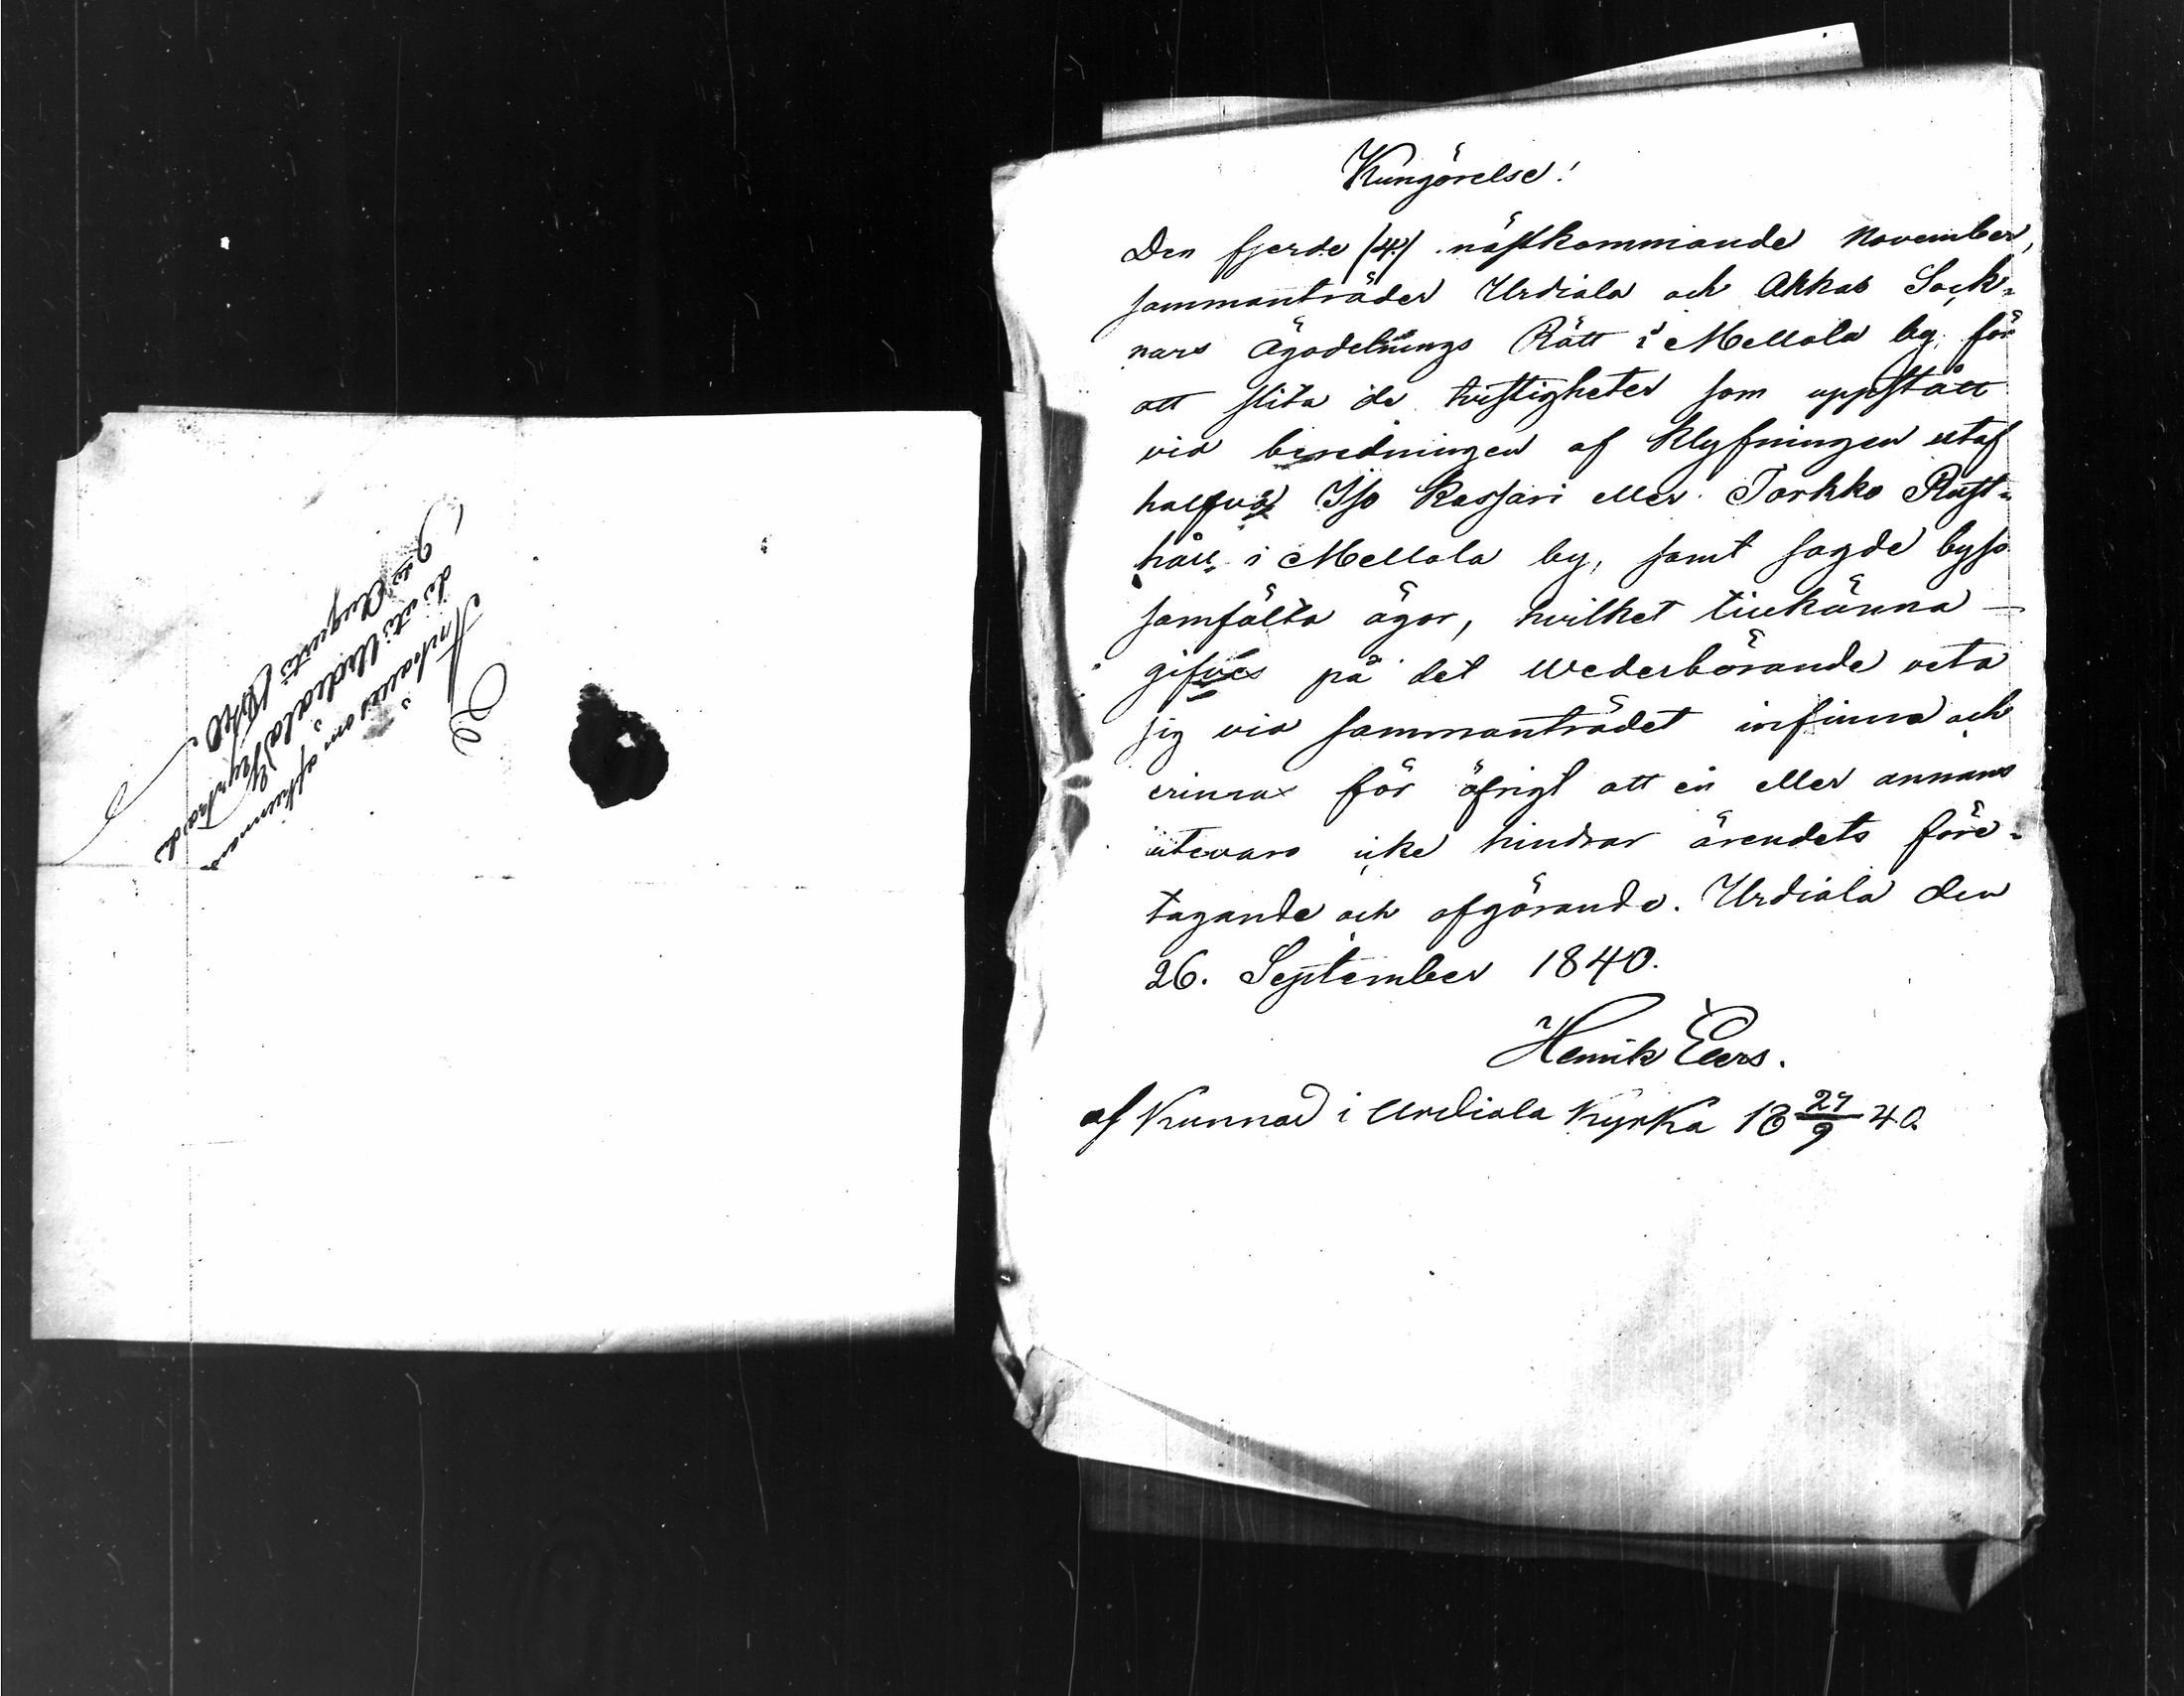 Innehållet afkunnad
dt uti Urdiala Kyrka d.
9de Augusti 1840.
Kungörelse!
Den fjerde (4) nästkommande November,
sammanträder Urdiala och Akkas Sock=
nars Ägodelnings Rätt i Mellola by för
att slita de tvistigheter som uppstått
vid beredningen af klyfningen utaf
halfva Iso Kassari eller Torkko Rust=
håll i Mellola by, samt sagde byss
samfälta ägor, hvilket tillkänna
gifves på det Wederbörande veta
sig vid sammanträdet infinna och
erinras för öfrigt att en eller annans
utevaro icke hindrar ärendets före=
tagande och afgörande. Urdiala den
26. September 1840.
Henrik
af Kunnad i Urdiala Kyrka 18 27/9 40